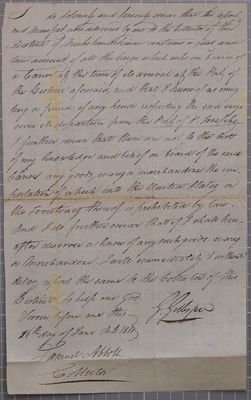 I do solemnly and sincerely swear that the report
and manifest now delivered by me to the Collector of the
District of Michilimackinac contains a just and
true account of all the cargo which was on board of
a Canoe at the time of its arrival at the Port of
the District aforesaid, and that I know of no smug
gling or fraud of any kind respecting the said cargo
since its departure from the Port of St Josephs
I further swear that there are not to the best
of my knowledge and belief on board of the said
Canoe any goods, wares or merchandize the im
portation of which into the United States or
the Territories thereof is prohibited by law.
And I do further swear that if I shall here
after discover or know of any such goods, wares
or Merchandize I will immediately & without
delay report the same to the Collector of this
District So help me God
Sworn before me this
16th day of June
Samuel Abbott
Collector